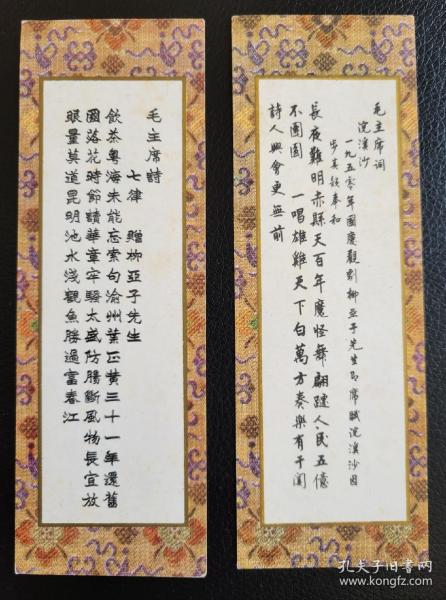 毛主席詩
七律 贈柳亞子先生
飲茶粵海未能忘索句渝州葉正黃三十一年還舊
國落花時節讀華章牢騷太盛防腸斷風物長宜放
眼量莫道昆明池水淺觀魚勝過富春江
毛主席词
浣溪沙
一九五零年國慶觀劇柳亞子先生即席賦浣溪沙因
步其韵奉和
長夜難明赤縣天百年魔怪舞翩躚人民五億
不團圓 一唱雄雞天下白萬方奏樂有于闐
詩人興會更無前
孔夫子旧书网
www.kongfz.com